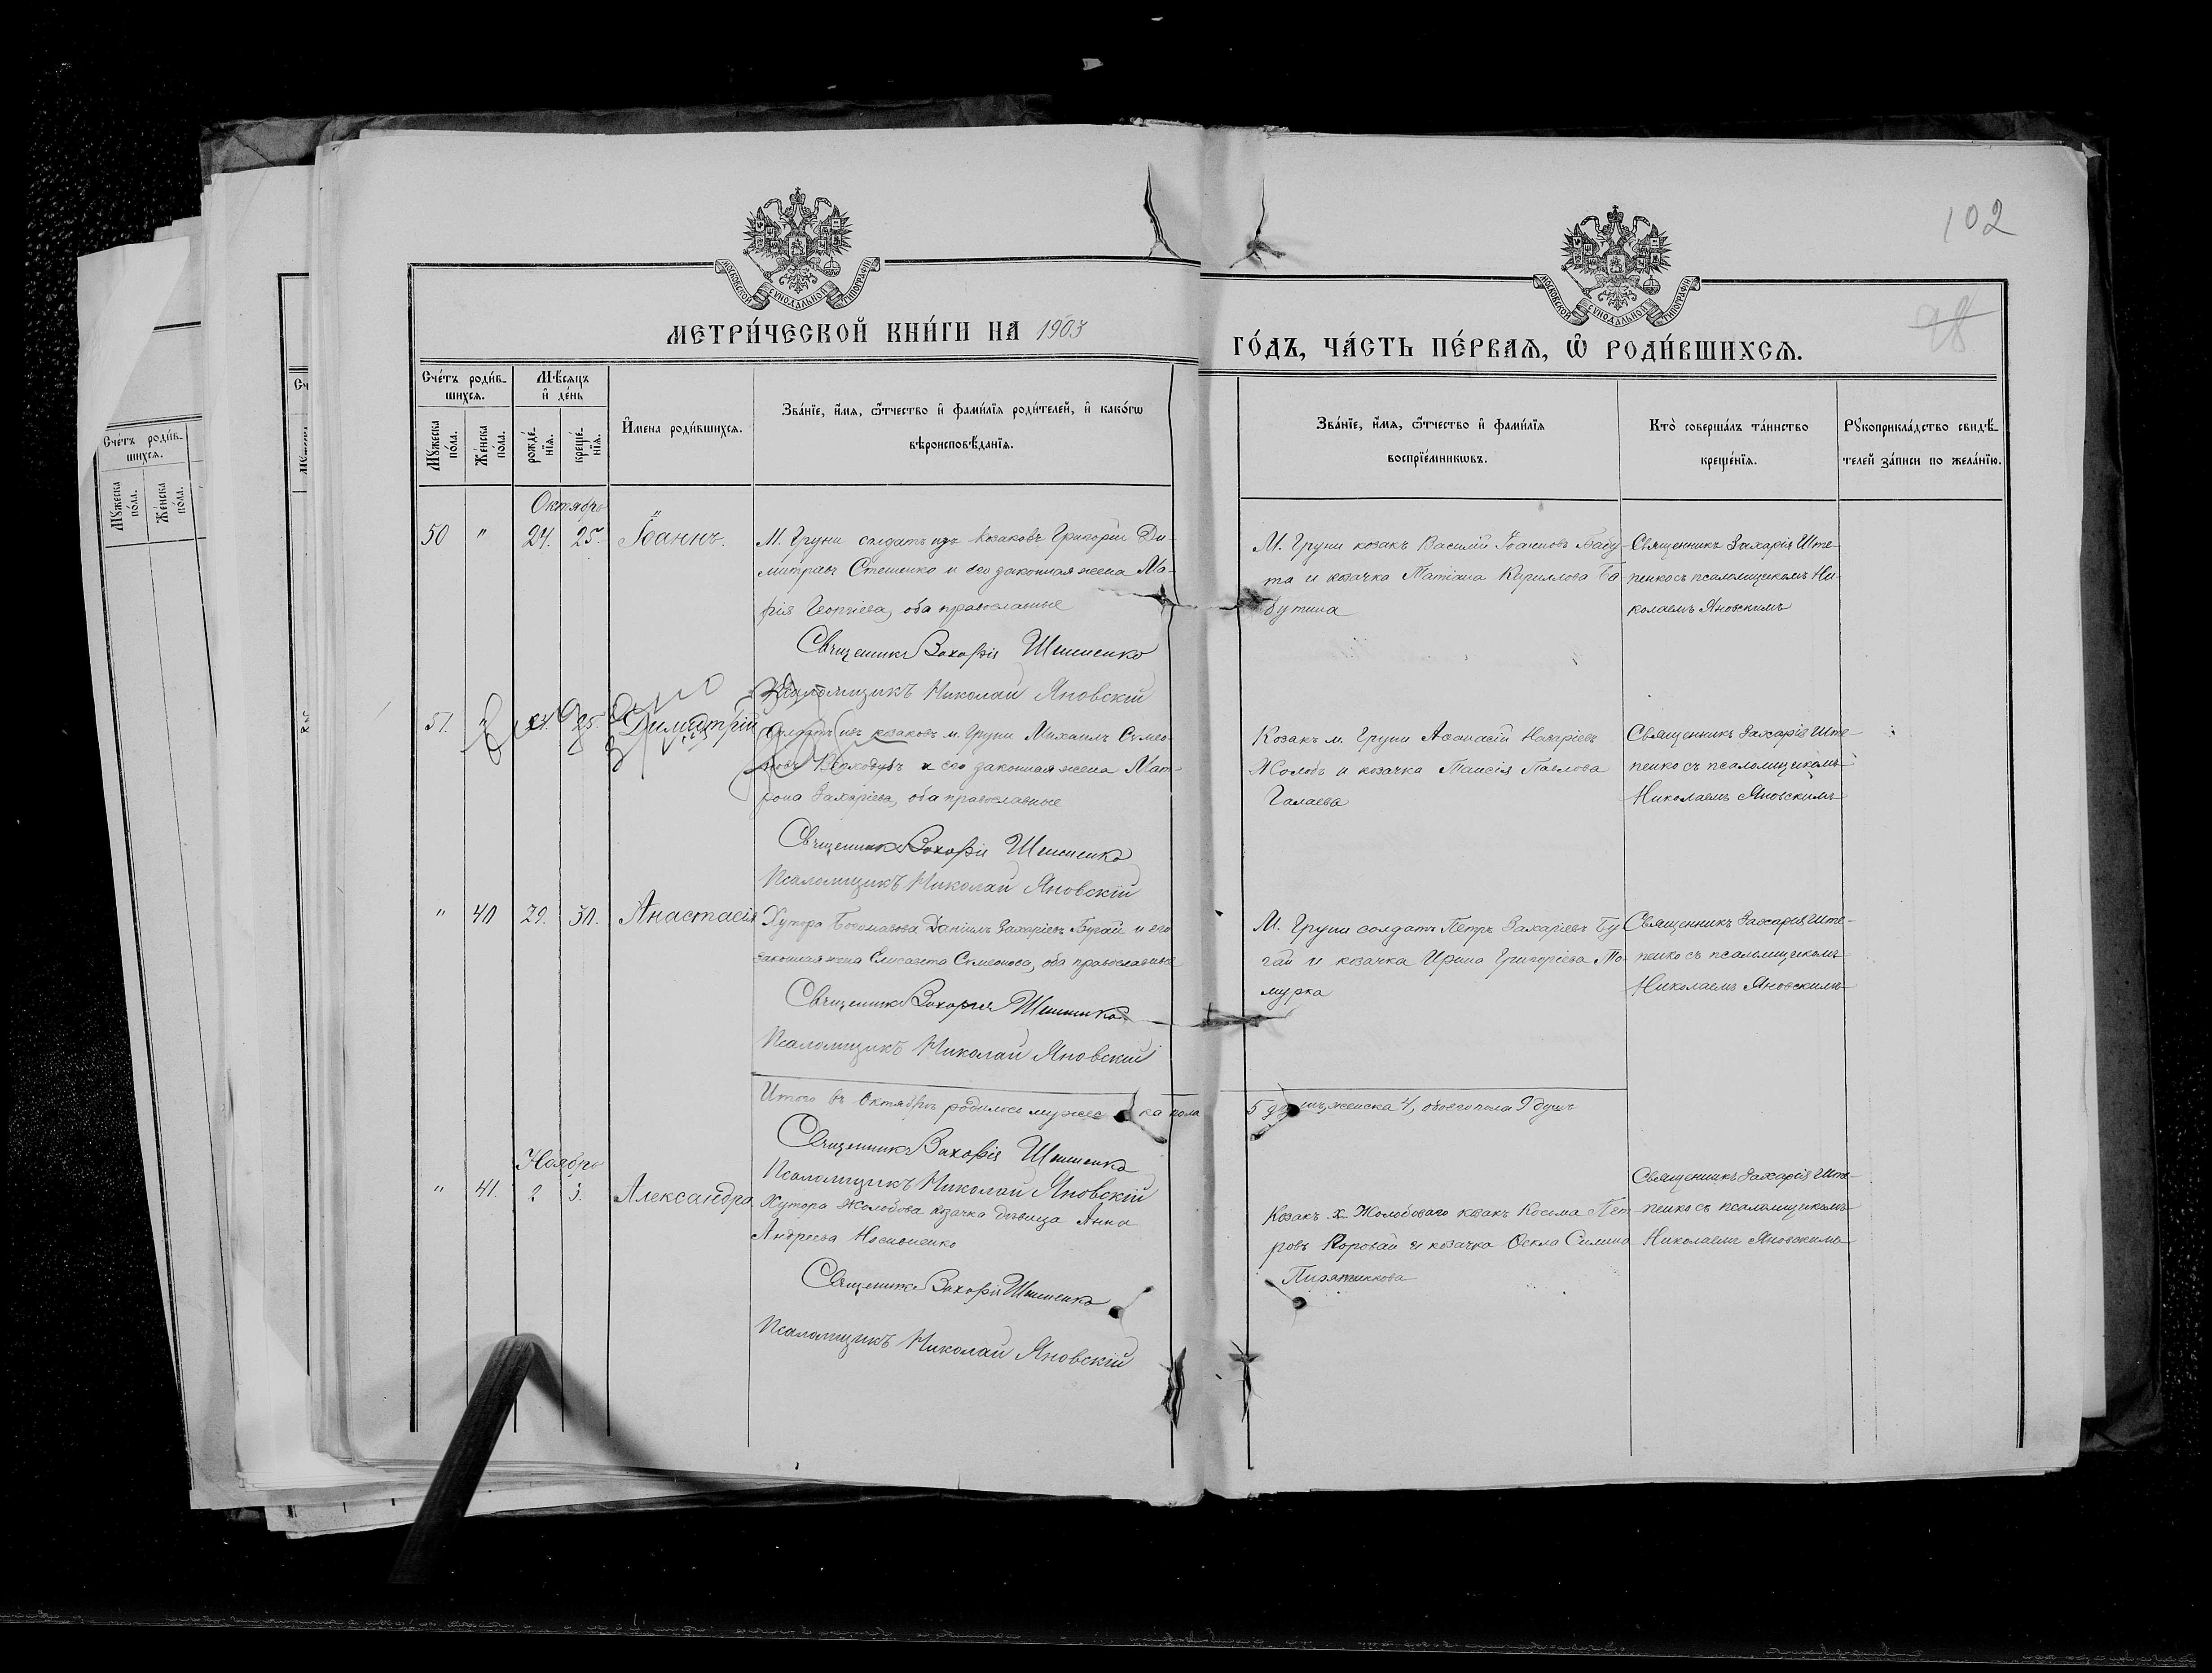 102
98
МОСКОВСКОЙ СѴНОДАЛЬНОЙ ТИПОГРАФІИ
МОСКОВСКОЙ СѴНОДАЛЬНОЙ ТИПОГРАФІИ
МЕТРИ́ЧЕСКОЙ КНИ́ГИ НА 1903
ГО́ДЪ, ЧА́СТЬ ПЕ́РВАѦ, Ѡ РОДИ́ВШИХСѦ.
Сче́тъ роди́в-
шихсѧ.
Мꙋ́жеска по́ла.
Же́нска по́ла.
Мѣ́сѧцъ и де́нь
рожде́-
нїѧ.
креще́-
нїѧ.
И҆мена роди́вшихсѧ.
Зва́нїе, и҆мѧ, ѻ҆́тчество и҆ фами́лїѧ роди́телей, и҆ како́гѡ
вѣроисповѣ́данїѧ.
Зва́нїе, и҆мѧ, ѻ҆́тчество и҆ фами́лїѧ
воспрїе́мникѡвъ.
Кто̀ соверша́лъ та́инство
креще́нїѧ.
Рꙋкоприкла́дство свидѣ́-
телей за́писи по жела́нїю.
Октябрь
50 " 24. 25. Іоаннъ.
М. Груни солдатъ изъ козаковъ Григорій Ди-
митріевъ Стешенко и его законная жена Ма-
рія Георгіева, оба православные
Священникъ Захарія Штепенко
Псаломщикъ Николай Яновскій
М. Груни козакъ Василій Іоанновъ Бабу-
та и козачка Татіана Кириллова Ба-
бутина
Священникъ Захарія Ште-
пенко съ псаломщикомъ Ни-
колаемъ Яновскимъ
51. " 24. 25. Димитрій
Солдатъ изъ козаковъ м. Груни Михаилъ Сѵмео-
новъ и его законная жена Мат-
рона Захаріева, оба православные
Священникъ Захарія Штепенко
Псаломщикъ Николай Яновскій
Козакъ м. Груни Афанасій Назаріевъ
Жолобъ и козачка Таисія Павлова
Галаева
Священникъ Захарія Ште-
пенко съ псаломщикомъ
Николаемъ Яновскимъ
" 40 29. 30. Анастасія
Хутора Даніилъ Захаріевъ Бугай и его
законная жена Елисавета Сѵмеонова, оба православные
Священникъ Захарія Штепенко
Псаломщикъ Николай Яновскій
М. Груни солдатъ Петръ Захаріевъ Бу-
гай и козачка Ирина Григоріева То-
мурка
Священникъ Захарія Ште-
пенко съ псаломщикомъ
Николаемъ Яновскимъ
Итого въ Октябрѣ родилось мужеска пола 5 душъ, женска 4, обоего пола 9 душъ
Священникъ Захарія Штепенко
Псаломщикъ Николай Яновскій
Ноябрь
" 41. 2 3. Александра
Хутора Жолобова козачка дѣвица Анна
Андреева Носоненко
Священникъ Захарія Штепенко
Псаломщикъ Николай Яновскій
Козакъ х. Жолобоваго козакъ Косьма Пет-
ровъ Коровай и козачка Ѳекла Силина
Пирятинкова
Священникъ Захарія Ште-
пенко съ псаломщикомъ
Николаемъ Яновскимъ